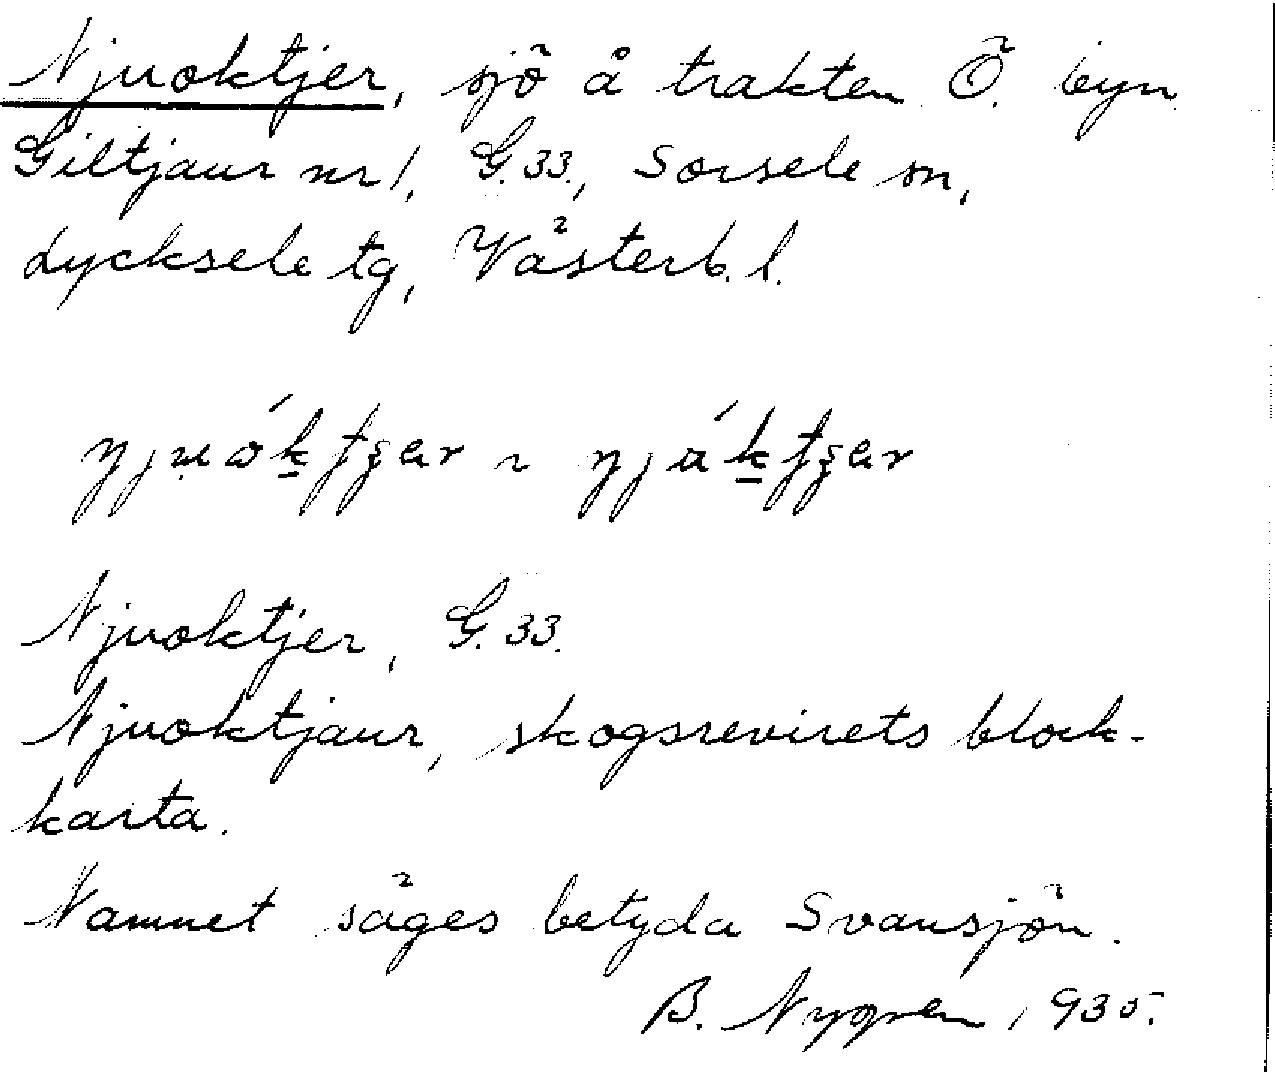 Njuoktjer, sjö å trakten Ö. byn
Giltjaur nr 1, G.33., Sorsele sn,
Lycksele tg, Västerb. l.
Njuoktjer, G.33.
Njuoktjaur, skogsrevirets block-
karta.
Namnet säges betyda Svansjön.
B. Nygren, 1935.